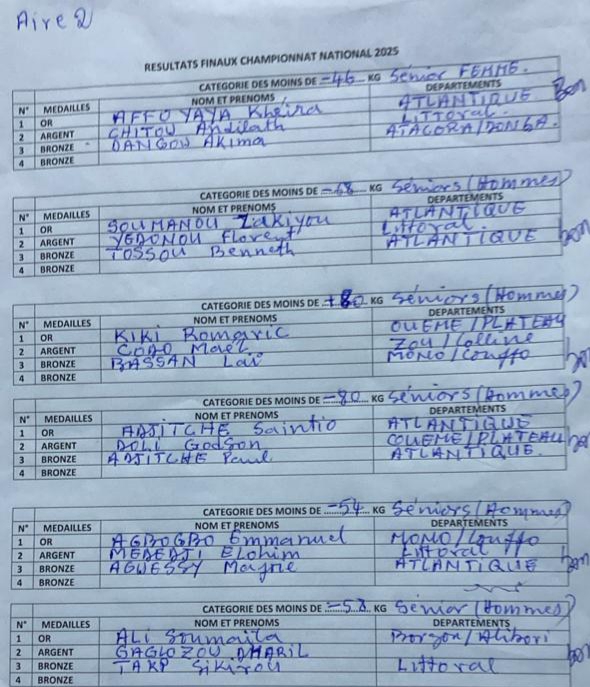 Aire 2
RESULTATS FINAUX CHAMPIONNAT NATIONAL 2025
CATEGORIE DES MOINS DE -46 KG Sénior FEMME.
N° MEDAILLES NOM ET PRENOMS DEPARTEMENTS
1 OR AFFO YAYA Kheira ATLANTIQUE Bon
2 ARGENT CHITOU Andilath Littoral.
3 BRONZE DANGOU Akima ATACORA/DONGA.
4 BRONZE
CATEGORIE DES MOINS DE -68 KG Séniors (Hommes)
N° MEDAILLES NOM ET PRENOMS DEPARTEMENTS
1 OR SOUMANOU Zakiyou ATLANTIQUE
2 ARGENT YEDONOU Florent Littoral. bon
3 BRONZE TOSSOU Benneth ATLANTIQUE
4 BRONZE
CATEGORIE DES MOINS DE +80 KG Séniors (Hommes)
N° MEDAILLES NOM ET PRENOMS DEPARTEMENTS
1 OR KIKI Romaric OUEME/PLATEAU
2 ARGENT CODO Maël Zou/Colline
3 BRONZE BASSAN Laï MONO/Couffo
4 BRONZE
CATEGORIE DES MOINS DE -80 KG Séniors (Hommes)
N° MEDAILLES NOM ET PRENOMS DEPARTEMENTS
1 OR ADJITCHE Saintio ATLANTIQUE
2 ARGENT DOLI Godson OUEME/PLATEAU
3 BRONZE ADJITCHE Paul ATLANTIQUE.
4 BRONZE
CATEGORIE DES MOINS DE -54 KG Séniors (Hommes)
N° MEDAILLES NOM ET PRENOMS DEPARTEMENTS
1 OR AGBOGBO Emmanuel MONO/Couffo
2 ARGENT MEDEDJI Elohim Littoral
3 BRONZE AGUESSY ATLANTIQUE bon
4 BRONZE
CATEGORIE DES MOINS DE -58 KG Sénior (Hommes)
N° MEDAILLES NOM ET PRENOMS DEPARTEMENTS
1 OR ALI Soumaila Borgou/Alibori
2 ARGENT GAGLOZOU DHARIL bon
3 BRONZE Sikirou Littoral
4 BRONZE